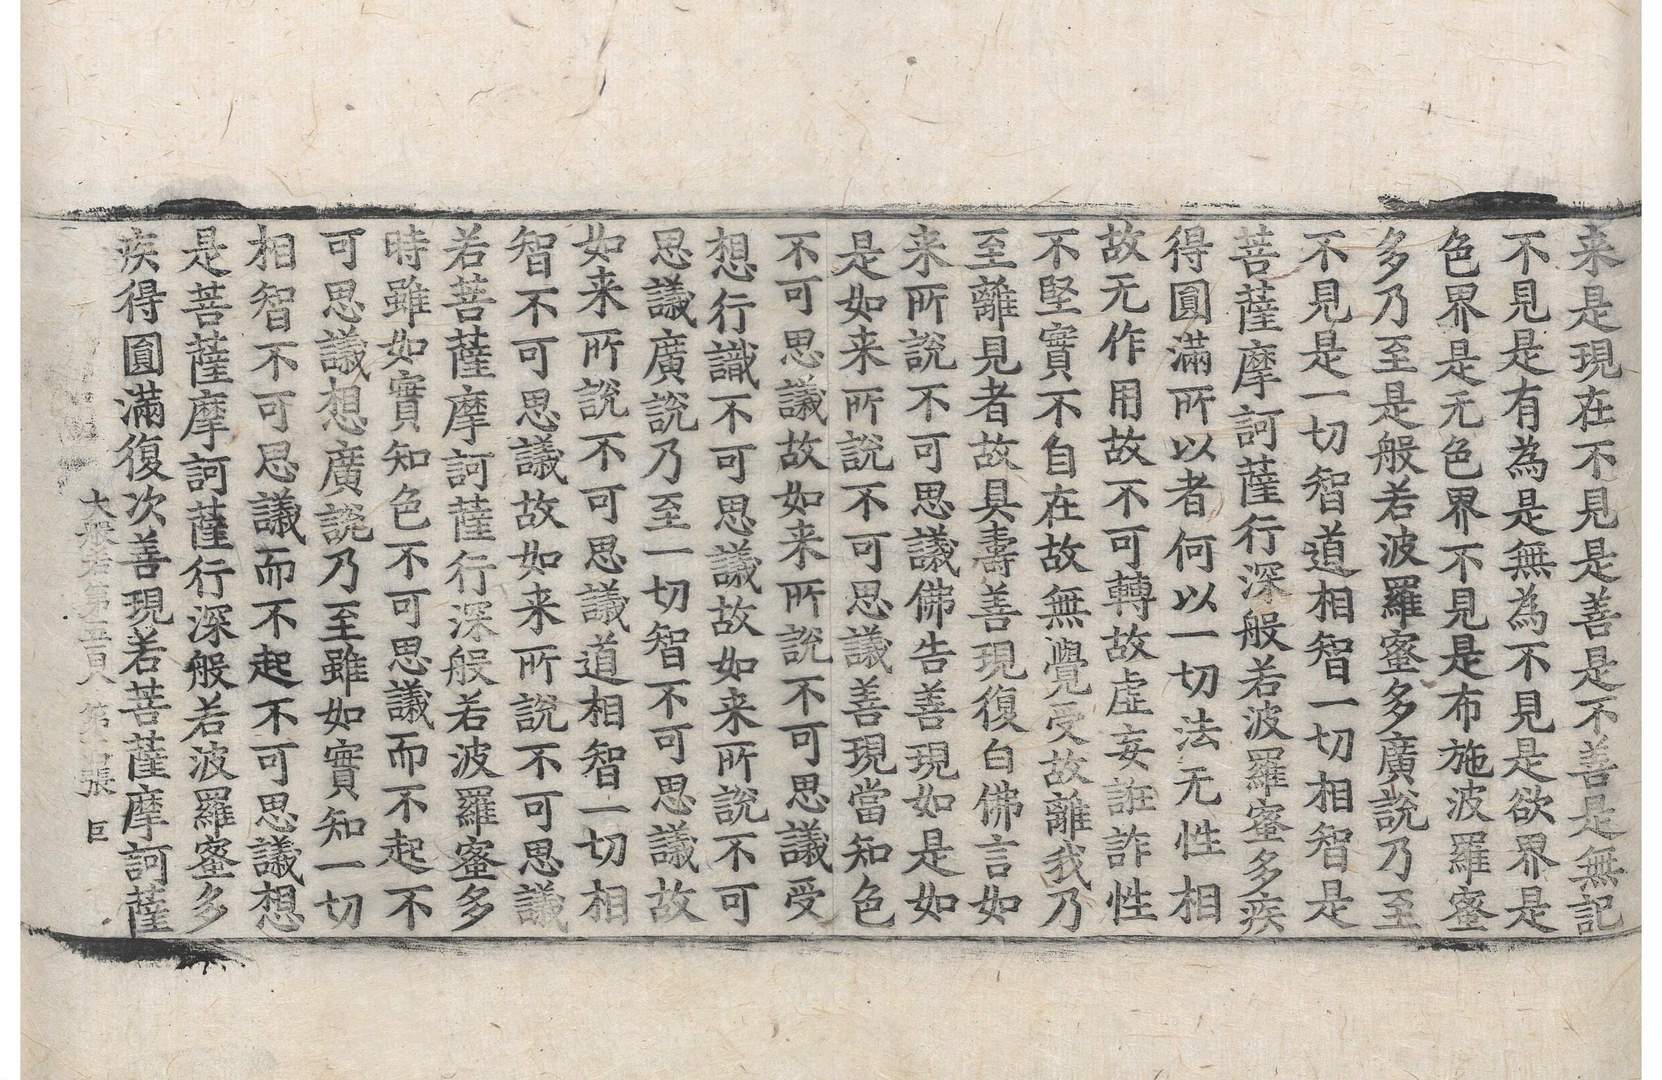 来是現在不見是善是不善是無記
不見是有為是無為不見是欲界是
色界是无色界不見是布施波羅蜜
多乃至是般若波羅蜜多廣說乃至
不見是一切智道相智一切相智是
菩薩摩訶薩行深般若波羅蜜多疾
得圓滿所以者何以一切法无性相
故无作用故不可轉故虛妄誑詐性
不堅實不自在故無覺受故離我乃
至離見者故具壽善現復白佛言如
来所說不可思議佛告善現如是如
是如来所說不可思議善現當知色
不可思議故如来所說不可思議受
想行識不可思議故如来所說不可
思議廣說乃至一切智不可思議故
如来所說不可思議道相智一切相
智不可思議故如来所說不可思議
若菩薩摩訶薩行深般若波羅蜜多
時雖如實知色不可思議而不起不
可思議想廣說乃至雖如實知一切
相智不可思議而不起不可思議想
是菩薩摩訶薩行深般若波羅蜜多
疾得圓滿復次善現若菩薩摩訶薩
大般若第五百八 第 張 巨